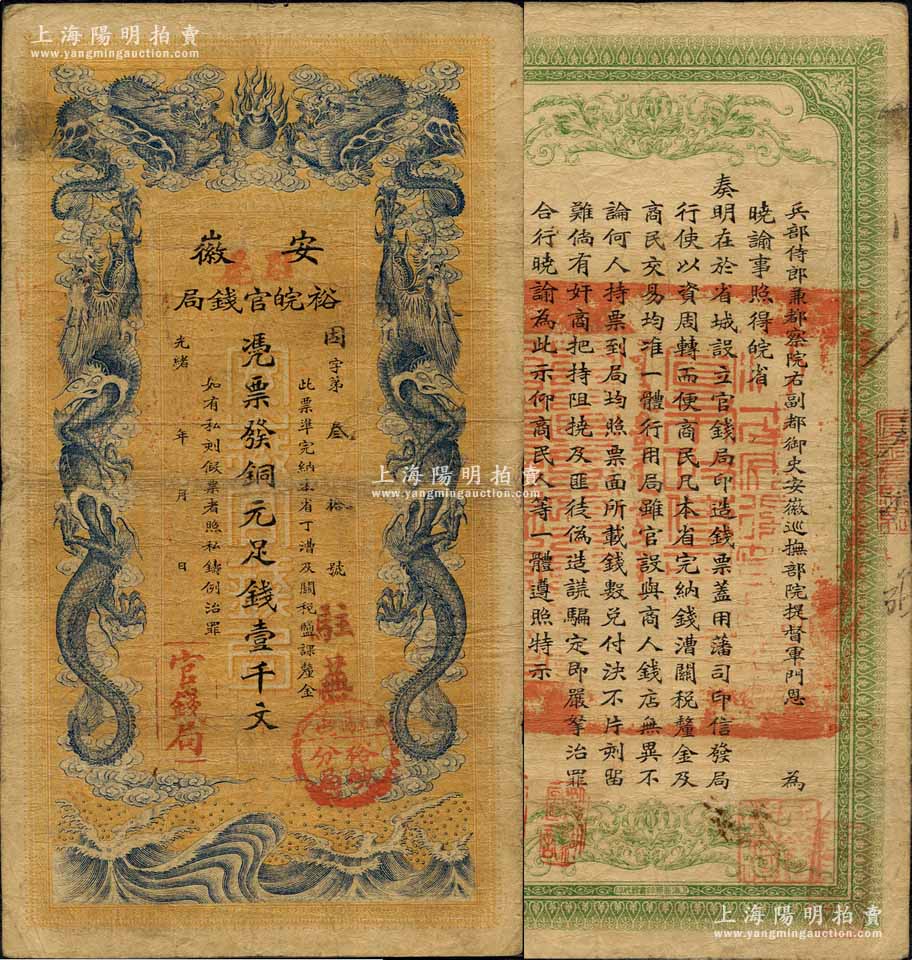 上海陽明拍賣
www.yangmingauction.com
安徽
裕皖官錢局
固字第叁拾號
此票準完納本省丁漕及關稅鹽課釐金
憑票發銅元足錢壹千文
如有私刻假票者照私鑄例治罪
光緒 年 月 日
駐蕪
官錢局
上海陽明拍賣
www.yangmingauction.com
上海陽明拍賣
www.yangmingauction.com
兵部侍郎兼都察院右副都御史安徽巡撫部院提督軍門恩 為
曉諭事照得皖省
奏明在於省城設立官錢局印造錢票蓋用藩司印信發局
行使以資周轉而便商民凡本省完納錢漕關稅釐金及
商民交易均准一體行用局雖官設與商人錢店無異不
論何人持票到局均照票面所載錢數兌付決不片刻留
難倘有奸商把持阻撓及匪徒偽造謊騙定即嚴拏治罪
合行曉諭為此示仰商民人等一體遵照特示
上海陽明拍賣
www.yangmingauction.com